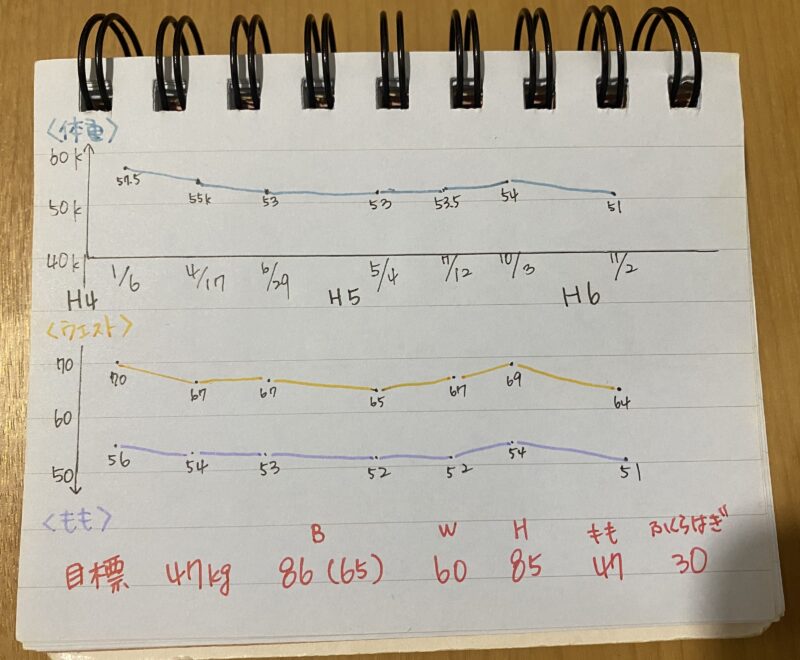 <体重>
60k
57.5 55k 53 53 53.5 54 51
50k
40k
1/6 4/17 6/29 5/4 7/12 10/3 11/2
H4 H5 H6
<ウエスト>
70
70 67 67 65 67 69 64
60
56 54 53 52 52 54 51
50
<もも>
B W H もも ふくらはぎ
目標 47kg 86(65) 60 85 47 30